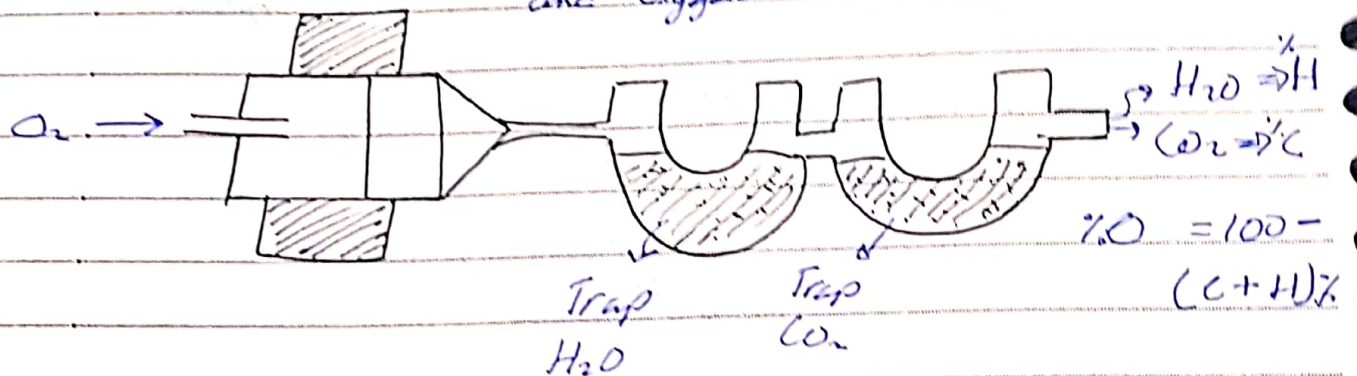 O₂ →
Trap
H₂O
Trap
CO₂
%
H₂O ⇒ H
%
CO₂ ⇒ C
%O = 100 -
(C + H)%